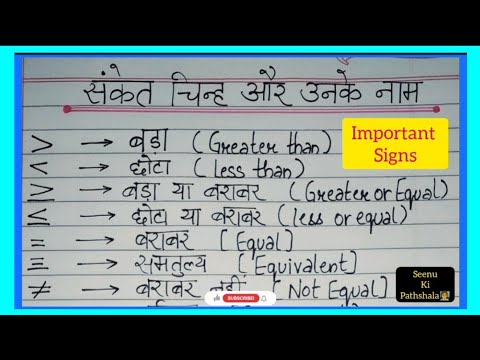 संकेत चिन्ह और उनके नाम
> → बड़ा (Greater than)
Important
Signs
< → छोटा (less than)
≥ → बड़ा या बराबर (Greater or Equal)
≤ → छोटा या बराबर (less or equal)
= → बराबर [Equal]
≡ → समतुल्य [Equivalent]
≠ → बराबर नहीं [Not Equal]
SUBSCRIBE
Seenu
Ki
Pathshala